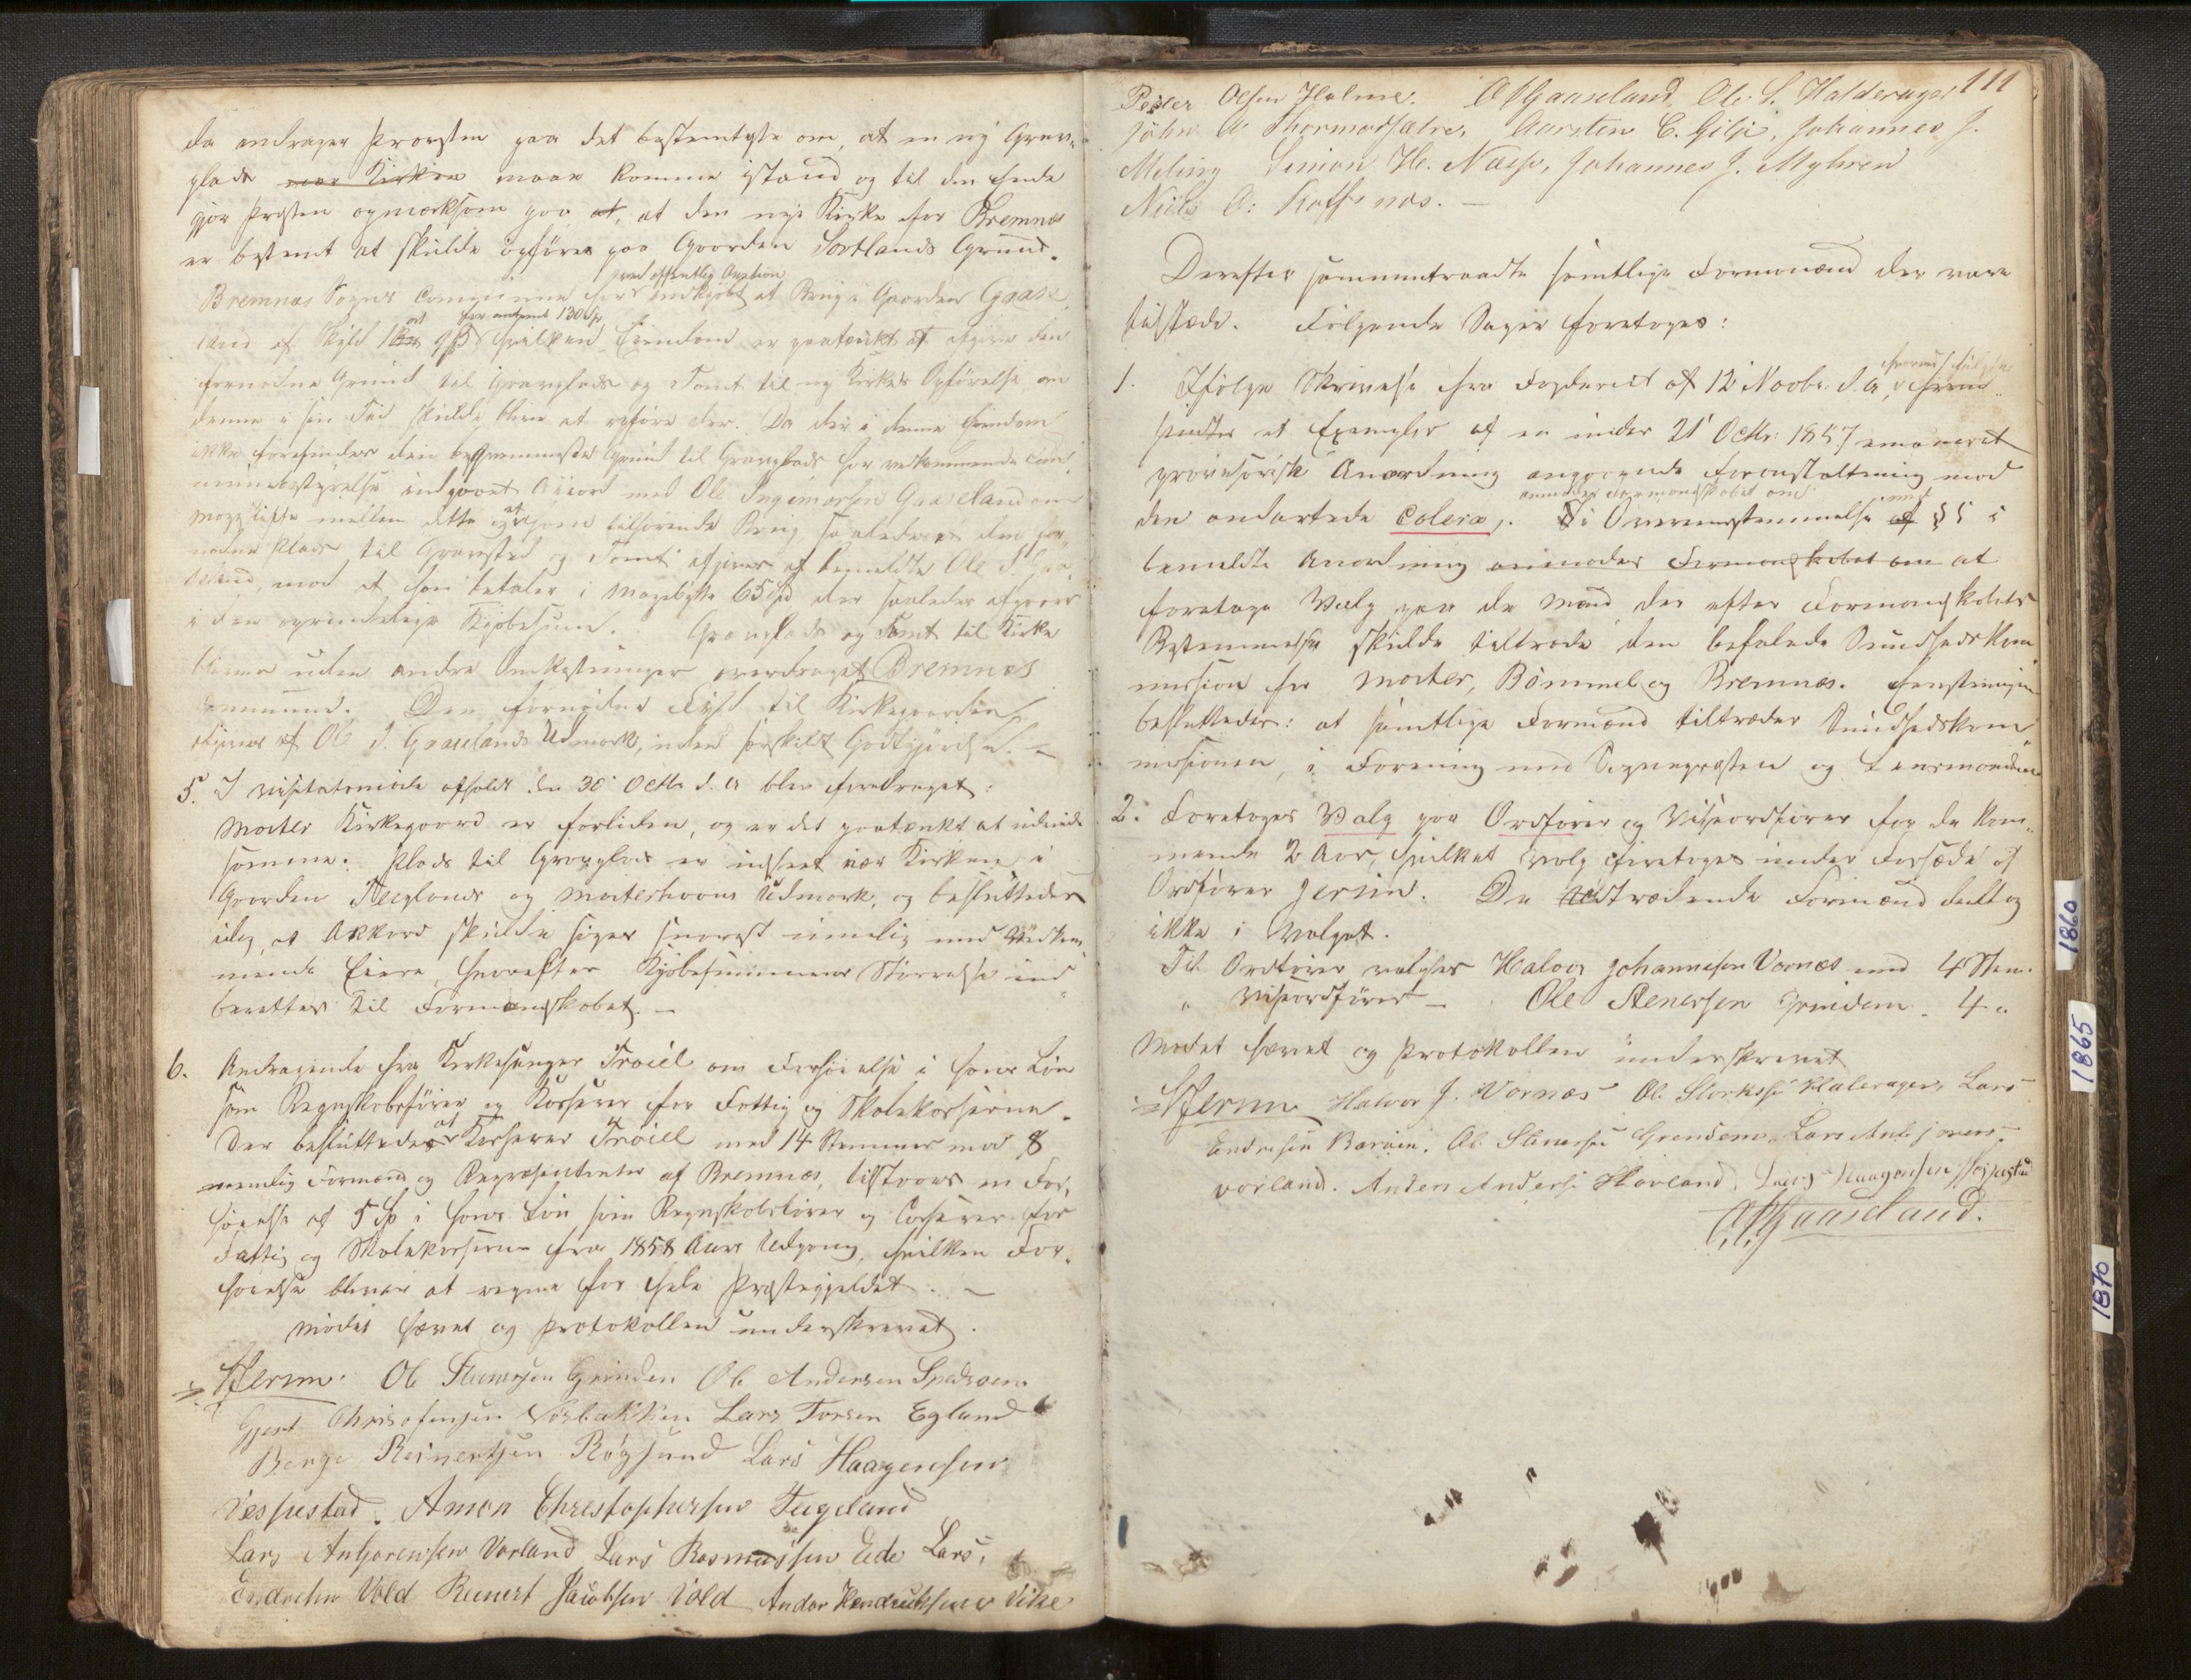 da andrager Provsten paa det bestemteste om, at en ny Grav-
plads nær Kirken maae komme istand og til den Ende
gjør Provsten opmærksom paa at, at den nye Kirke for Bremnæs
er bestemt at skulde opføres paa Gaarden Sortlands Grund.
ved offentlig Auction
Bremnæs Sogns Commune har indkjøbt et Brug i Gaarden Gaase
ort for omtrent 130 Sp
land af Skyld 1 hvilken Eiendom er paatænkt at afgive den
fornødne Grund til Gravplads og Tomt til ny Kirkes Opførelse om
denne i sin Tid skulde blive at opføre der. Da der i denne Eiendom
ikke forefindes den beqvemmeste Grund til Gravplads har vedkommende Com
munebestyrelse indgaaet Accord med Ole Ingemarsen Gaaseland om
Magebytte mellem dette og et ham tilhørende Brug, saaledes at den for
nødne Plads til Gravsted og Tomt afgives af bemeldte Ole I. Gaa
seland, mod at han betaler i Magebytte 65 Spd der saaledes afgaaer
i den oprindelige Kjøbesum. Gravplads og Tomt til Kirke
bliver uden andre Omkostninger overdraget Bremnæs
Commune. Den fornødne Fyld til Kirkegaarden
afgives af Ole I. Gaaselands Udmark, uden særskilt Godtgjørelse. —
5. I Visitatsmøde afholdt den 30 Octbr d. A. blev foredraget:
Moster Kirkegaard er forliden, og er det paatænkt at udvide
samme. Plads til Gravplads er indseet nær Kirken i
Gaarden Teeglands og Mosterhavns Udmark, og besluttedes
idag, at Akkord skulde søges snarest muelig med Vedkom
mende Eiere, hvorefter Kjøbesummens Størrelse ind
berettes til Formandskabet. —
6. Andragende fra Kirkesanger Troiel om Forhøielse i hans Løn
som Regnskabsfører og Kasserer for Fattig og Skolekasserne.
Der besluttedes at Kasserer Troiell med 14 Stemmer mod 8
nemlig Formænd og Repræsentanter af Bremnæs, tilstaaes en For,
høielse af 5 Sp i hans Løn som Regnskabsfører og Casserer for
Fattig og Skolekasserne fra 1858 Aars Udgang, hvilken For,
høielse bliver at regne for hele Præstegjeldet. —
Mødet hævet og Protokollen underskrevet.
Jersin. Ole Steenersen Grinden Ole Andersen Spidsøen
Gjert Chrisofersen Vorbakken Lars Torsen Egland
Berge Reinertsen Røgsund Lars Haagensen
Vespestad. Amon Christophersen Teigeland
Lars Anfindsen Vorland Lars Rasmussen Eide Lars,
Endresen Vold Reinert Jacobsen Vold Andor Hendriksen Vike
111
Peder Olsen Holme. O I Gaaseland, Ole S. Halderager
John A Thormodsætre, Karsten C. Gilje, Johannes J.
Meling Simon He. Næss, Johannes J. Myhren
Niels O: Koffenæs. —
Derefter sammentraadte samtlige Formænd der vare
tilstæde. Følgende Sager foretoges:
1. Ifølge Skrivelse fra Fogderiet af 12 Novbr. d. A,
sendtes et Exemplar af en under 21' Octbr: 1857 emaneret
provisorisk Anordning angaaende Foranstaltning mod
anmodes Formandskabet om
den ondartede Colera,. I Overeensstemmelse med § 5 i
bemeldte Anordning anmodes Formandskabet om at
foretage Valg paa de Mænd der efter Formandskabets
Bestemmelse skulde tiltræde den befalede Sundhedskom
mission for Moster, Bømmel og Bremnæs.
besluttedes: at samtlige Formænd tiltræder Sundhedskom
missionen, i Forening med Sognepræsten og Lensmanden
2. Foretoges Valg paa Ordfører og Viseordfører for de kom,
mende 2 Aar, hvilket Valg foretoges under Forsæde af
Ordfører Jersin. De udtrædende Formænd deeltog
ikke i Valget.
Til Ordfører valgtes Halvor Johannesen Vornæs med 4 Stem.
" Viseordfører — Ole Stenersen Grinden 4 "
Mødet hævet og Protokollen underskrevet
Jersin Halvor J. Vornæs Ole Haleragen, Lars
Endresen Barøien. Ole Stenersen Grendem. Lars
vorland. Anders Anders: Hovland. Lars Haagensen Vespestad
O. I. Gaaseland.
1860
1865
1870